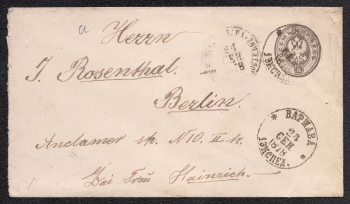 a Herrn
J. Rosenthal.
Berlin.
Anclamer str. N10. II tr.
bei Frau Heinrich.
ВАРШАВА
24
СЕН.
1878
1 ЭКСПЕД.